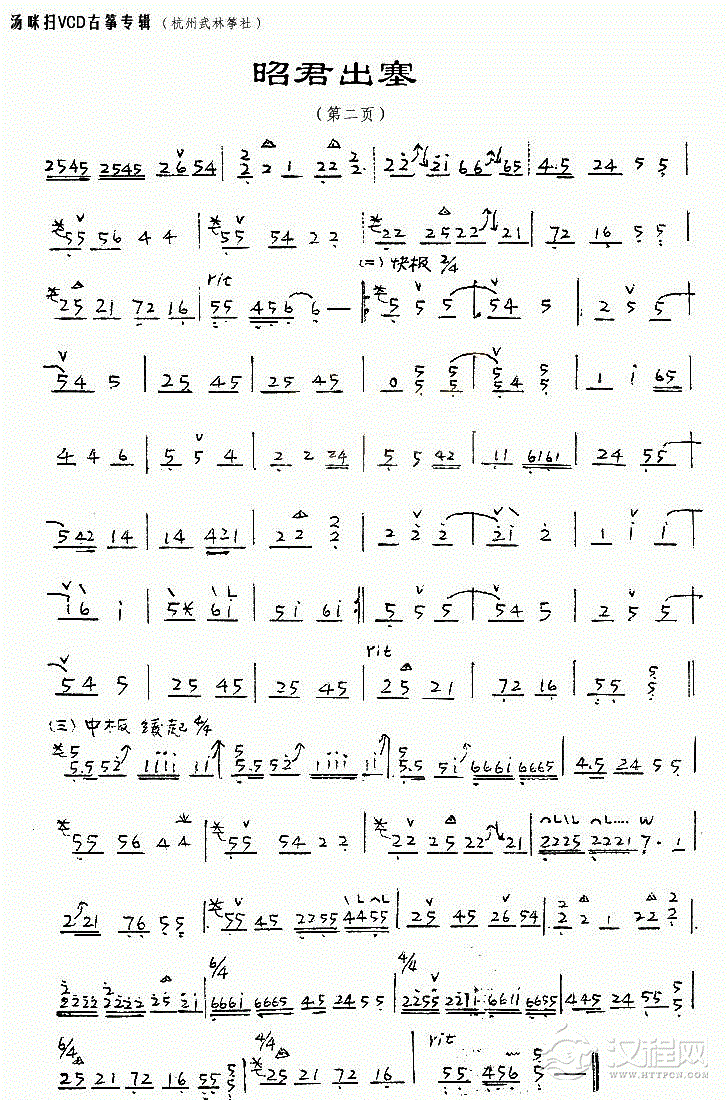 汤咪扫VCD古筝专辑（杭州武林筝社）
昭君出塞
（第二页）
2545 2545 2654 | 2 2 1 22 2 | 22 2i 66 65 | 4.5 24 5 5 |
55 56 4 4 | 55 54 2 2 | 22 2522 21 | 72 16 5 5 |
(二) 快板 2/4
rit
25 21 72 16 | 55 456 6 — | 5 5 5 | 54 5 | 2 5 5 |
54 5 | 25 45 | 25 45 | 0 5 5 | 54 5 | 1 i 65 |
4 4 6 | 5 5 4 | 2 2 24 | 5 5 42 | 11 6161 | 24 55 |
542 14 | 14 421 | 22 2 | 2 2 2 | 2i 2 | 1 i i |
i6 i | 5* 6i | 5i 6i | 5 5 5 | 54 5 | 2 5 5 |
rit
54 5 | 25 45 | 25 45 | 25 21 | 72 16 | 55 5 ||
(三) 中板 缓起 4/4
5.552 iiii ii | 5.552 iiii ii | 5.5 5i 666i 6665 | 4.5 24 5 5 |
55 56 4 4 | 55 54 2 2 | 22 25 22 21 | 2225 2221 7. 1 |
2 21 76 5 5 | 55 45 2255 4455 | 25 45 26 54 | 2 2 1 22 2 |
6/4
4/4
2222 2222 25 55 | 666i 6665 4.5 24 5 5 | 2255 22i 66ii 6655 | 445 24 55 5 |
6/4
4/4
rit
25 21 72 16 55 5 | 25 21 72 16 | 55 456 5 — ||
汉程网
WWW.HTTPCN.COM